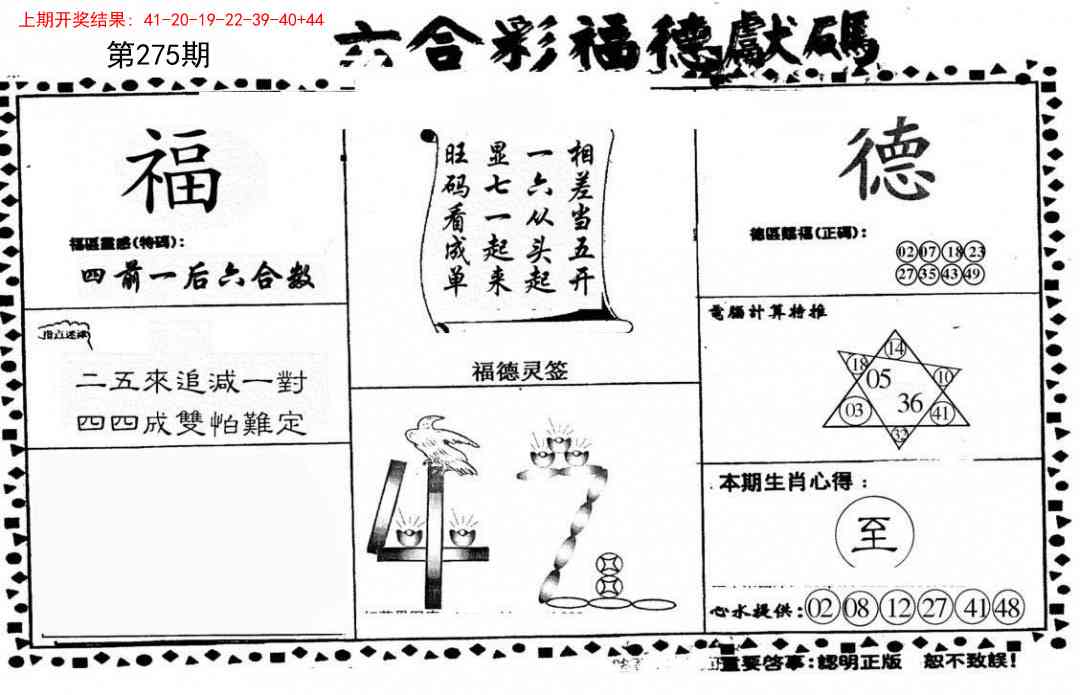 上期开奖结果：41-20-19-22-39-40+44
第275期
六合彩福德獻碼
福
福區靈感(特碼):
四前一后六合数
指点迷津
二五來追减一對
四四成雙怕難定
相差当五开
一六从头起
显七一起来
旺码看成单
福德灵签
德
德區賜福(正碼):
02 07 18 23
27 35 43 49
電腦計算特推
14
18 05 10
03 36 41
32
本期生肖心得：
至
心水提供: 02 08 12 27 41 48
重要啓事:認明正版 恕不致誤!